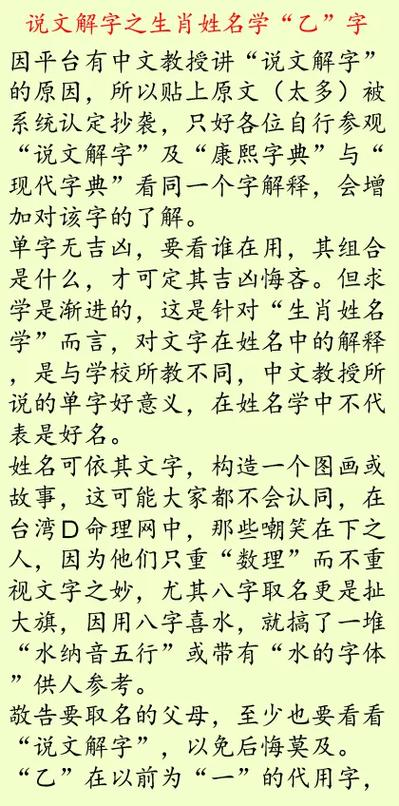 说文解字之生肖姓名学“乙”字
因平台有中文教授讲“说文解字”
的原因，所以贴上原文（太多）被
系统认定抄袭，只好各位自行参观
“说文解字”及“康熙字典”与“
现代字典”看同一个字解释，会增
加对该字的了解。
单字无吉凶，要看谁在用，其组合
是什么，才可定其吉凶悔吝。但求
学是渐进的，这是针对“生肖姓名
学”而言，对文字在姓名中的解释
，是与学校所教不同，中文教授所
说的单字好意义，在姓名学中不代
表是好名。
姓名可依其文字，构造一个图画或
故事，这可能大家都不会认同，在
台湾D命理网中，那些嘲笑在下之
人，因为他们只重“数理”而不重
视文字之妙，尤其八字取名更是扯
大旗，因用八字喜水，就搞了一堆
“水纳音五行”或带有“水的字体
”供人参考。
敬告要取名的父母，至少也要看看
“说文解字”，以免后悔莫及。
“乙”在以前为“一”的代用字，